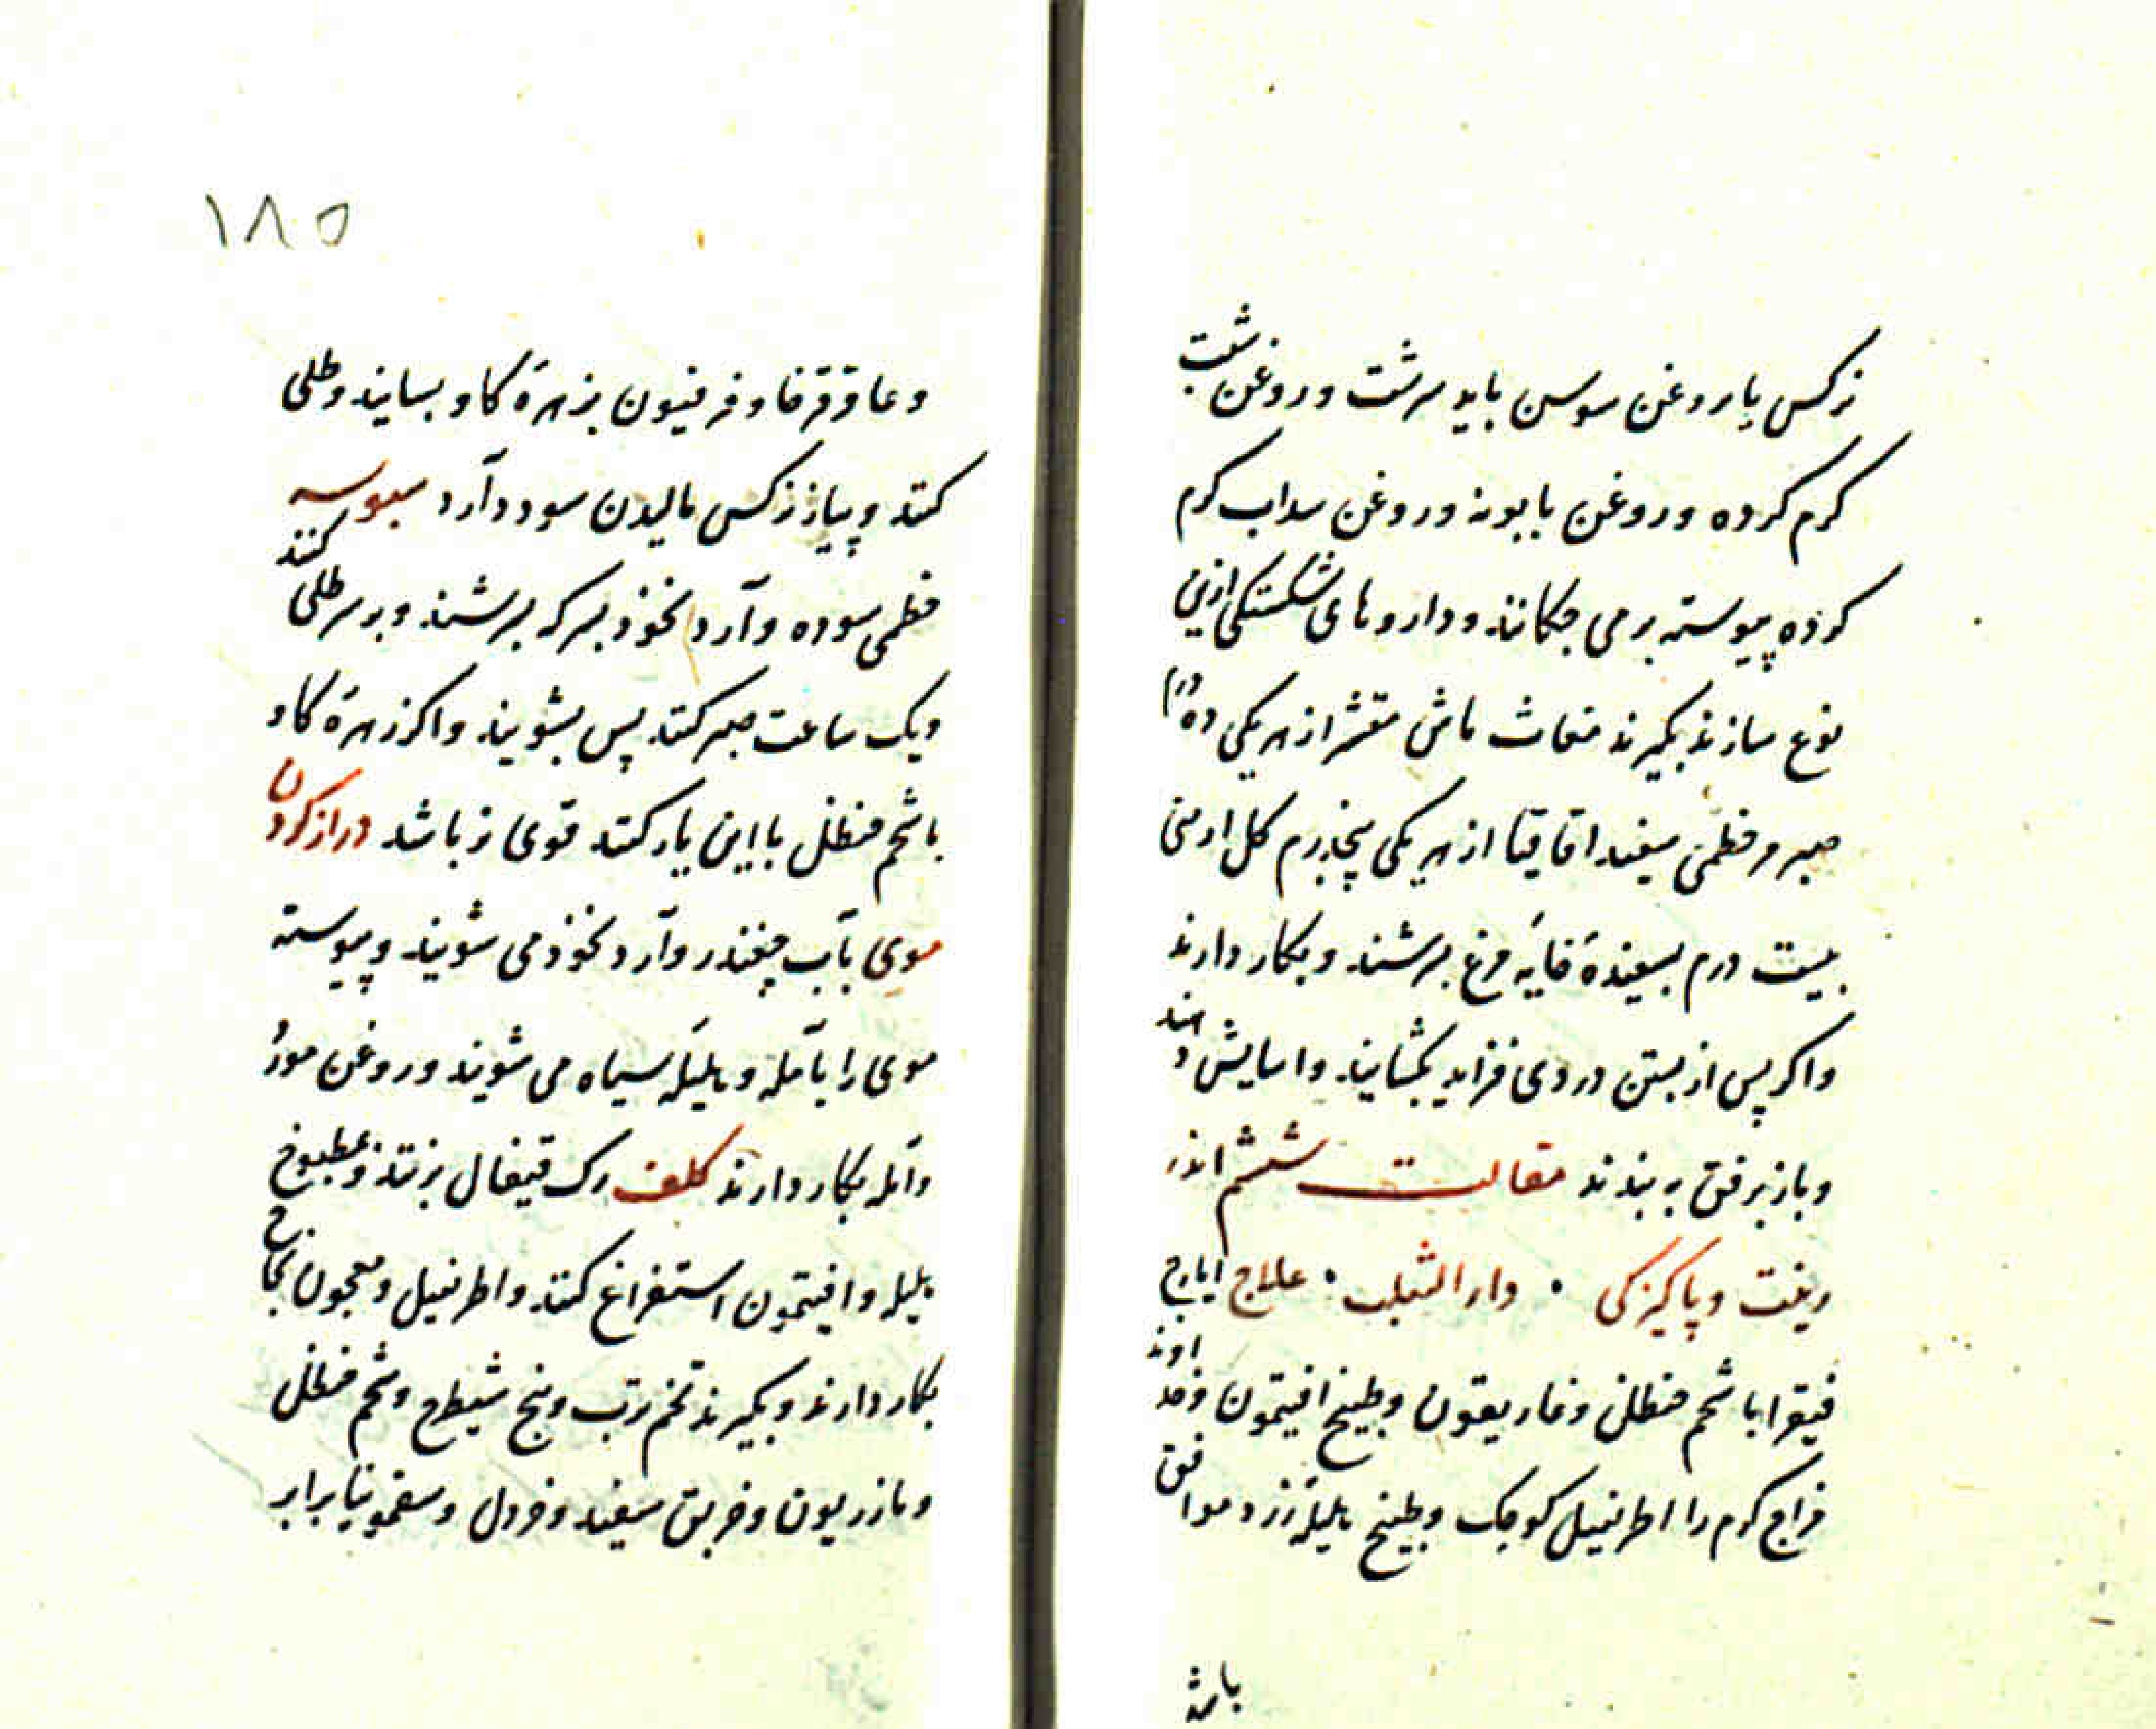 نرکس یا روغن سوسن باید سرشت و روغن شبت
کرم کرده و روغن بابونه و روغن سداب کرم
کرده پیوسته بر می چکانند و داروهای شکستکی ازین
نوع سازند بکیرند مغاث ماش مقشر از هر یکی ده درم
صبر و خطمی سفید اقاقیا از هر یکی پنجدرم کل ارمنی
بیست درم بسفیدۀ خایۀ مرغ بسرشند و بکار دارند
واکر پس از بستن درد می فزاید بکشایند و اسایش دهند
و باز برفق به بندند مقالت ششم اندر
زینت و پاکیزکی . داء الثعلب . علاج ایارج
فیقرا با شحم حنظل و غاریقون و طبیخ افتیمون و خداوند
مزاج کرم را اطریفیل کوچک و طبیخ هلیلۀ زرد موافق
باشد
۱۸۵
و عاقرقرحا و فرفیون بزهرۀ کاو بسایند و طلی
کنند و پیاز نرکس مالیدن سود دارد سبوسه
خطمی سوده و آرد نخود بسرکه بسرشند و بر سر طلی کنند
و یک ساعت صبر کنند پس بشویند و اکر زهرۀ کاو
با شحم حنظل با این یار کنند قوی تر باشد دراز کردن
موی بآب چغندر و آرد نخود می شویند و پیوسته
موی را بآمله و هلیلۀ سیاه می شویند و روغن مورد
و آمله بکار دارند کلف رک قیفال بزنند و مطبوخ
هلیله و افتیمون استفراغ کنند و اطریفیل و معجون نجاح
بکار دارند و بکیرند تخم ترب و بنج شیطرج و شحم حنظل
و مازریون و خربق سفید و خردل و سقمونیا برابر